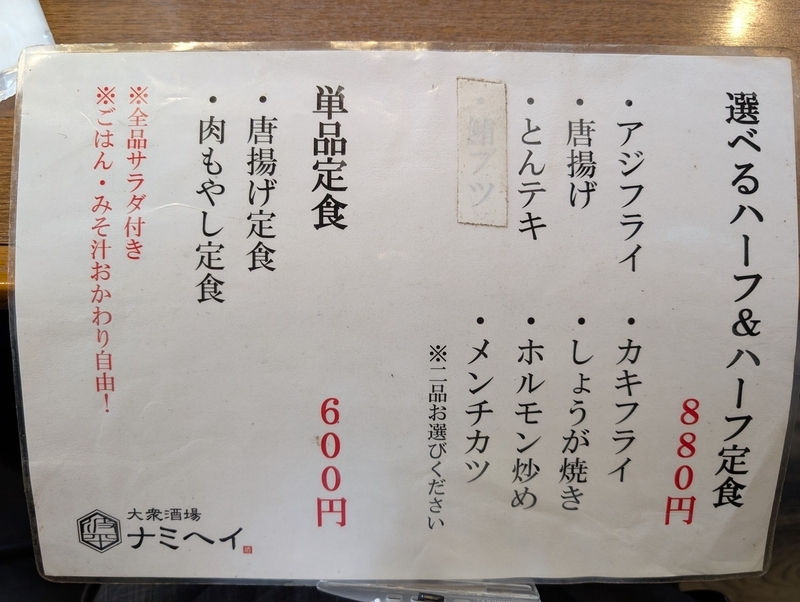 選べるハーフ＆ハーフ定食
880円
・アジフライ
・カキフライ
・唐揚げ
・しょうが焼き
・とんテキ
・ホルモン炒め
・メンチカツ
※二品お選びください
単品定食
600円
・唐揚げ定食
・肉もやし定食
※全品サラダ付き
※ごはん・みそ汁おかわり自由！
大衆酒場
ナミヘイ